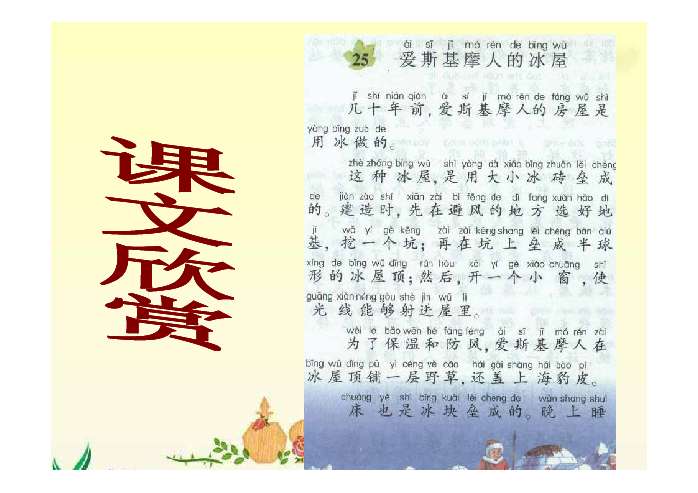 课文欣赏
25
ài sī jī mó rén de bīng wū
爱斯基摩人的冰屋
jǐ shí nián qián ài sī jī mó rén de fáng wū shì
几十年前,爱斯基摩人的房屋是
yòng bīng zuò de
用冰做的。
zhè zhǒng bīng wū shì yòng dà xiǎo bīng zhuān lěi chéng
这种冰屋,是用大小冰砖垒成
de jiàn zào shí xiān zài bì fēng de dì fang xuǎn hǎo dì
的。建造时,先在避风的地方选好地
jī wā yí gè kēng zài zài kēng shang lěi chéng bàn qiú
基,挖一个坑;再在坑上垒成半球
xíng de bīng wū dǐng rán hòu kāi yí gè xiǎo chuāng shǐ
形的冰屋顶;然后,开一个小窗,使
guāng xiàn néng gòu shè jìn wū li
光线能够射进屋里。
wèi le bǎo wēn hé fáng fēng ài sī jī mó rén zài
为了保温和防风,爱斯基摩人在
bīng wū dǐng pū yì céng yě cǎo hái gài shang hǎi bào pí
冰屋顶铺一层野草,还盖上海豹皮。
chuáng yě shì bīng kuài lěi chéng de wǎn shang shuì
床也是冰块垒成的。晚上睡